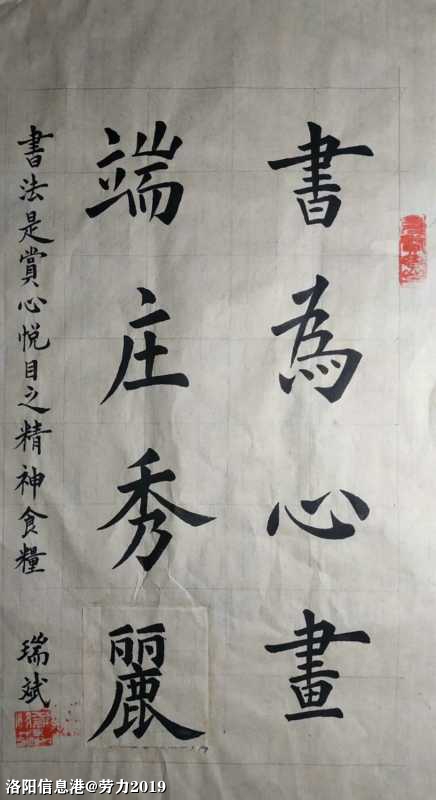 書為心畫
端庄秀麗
書法是賞心悅目之精神食糧
瑞斌
洛阳信息港@劳力2019